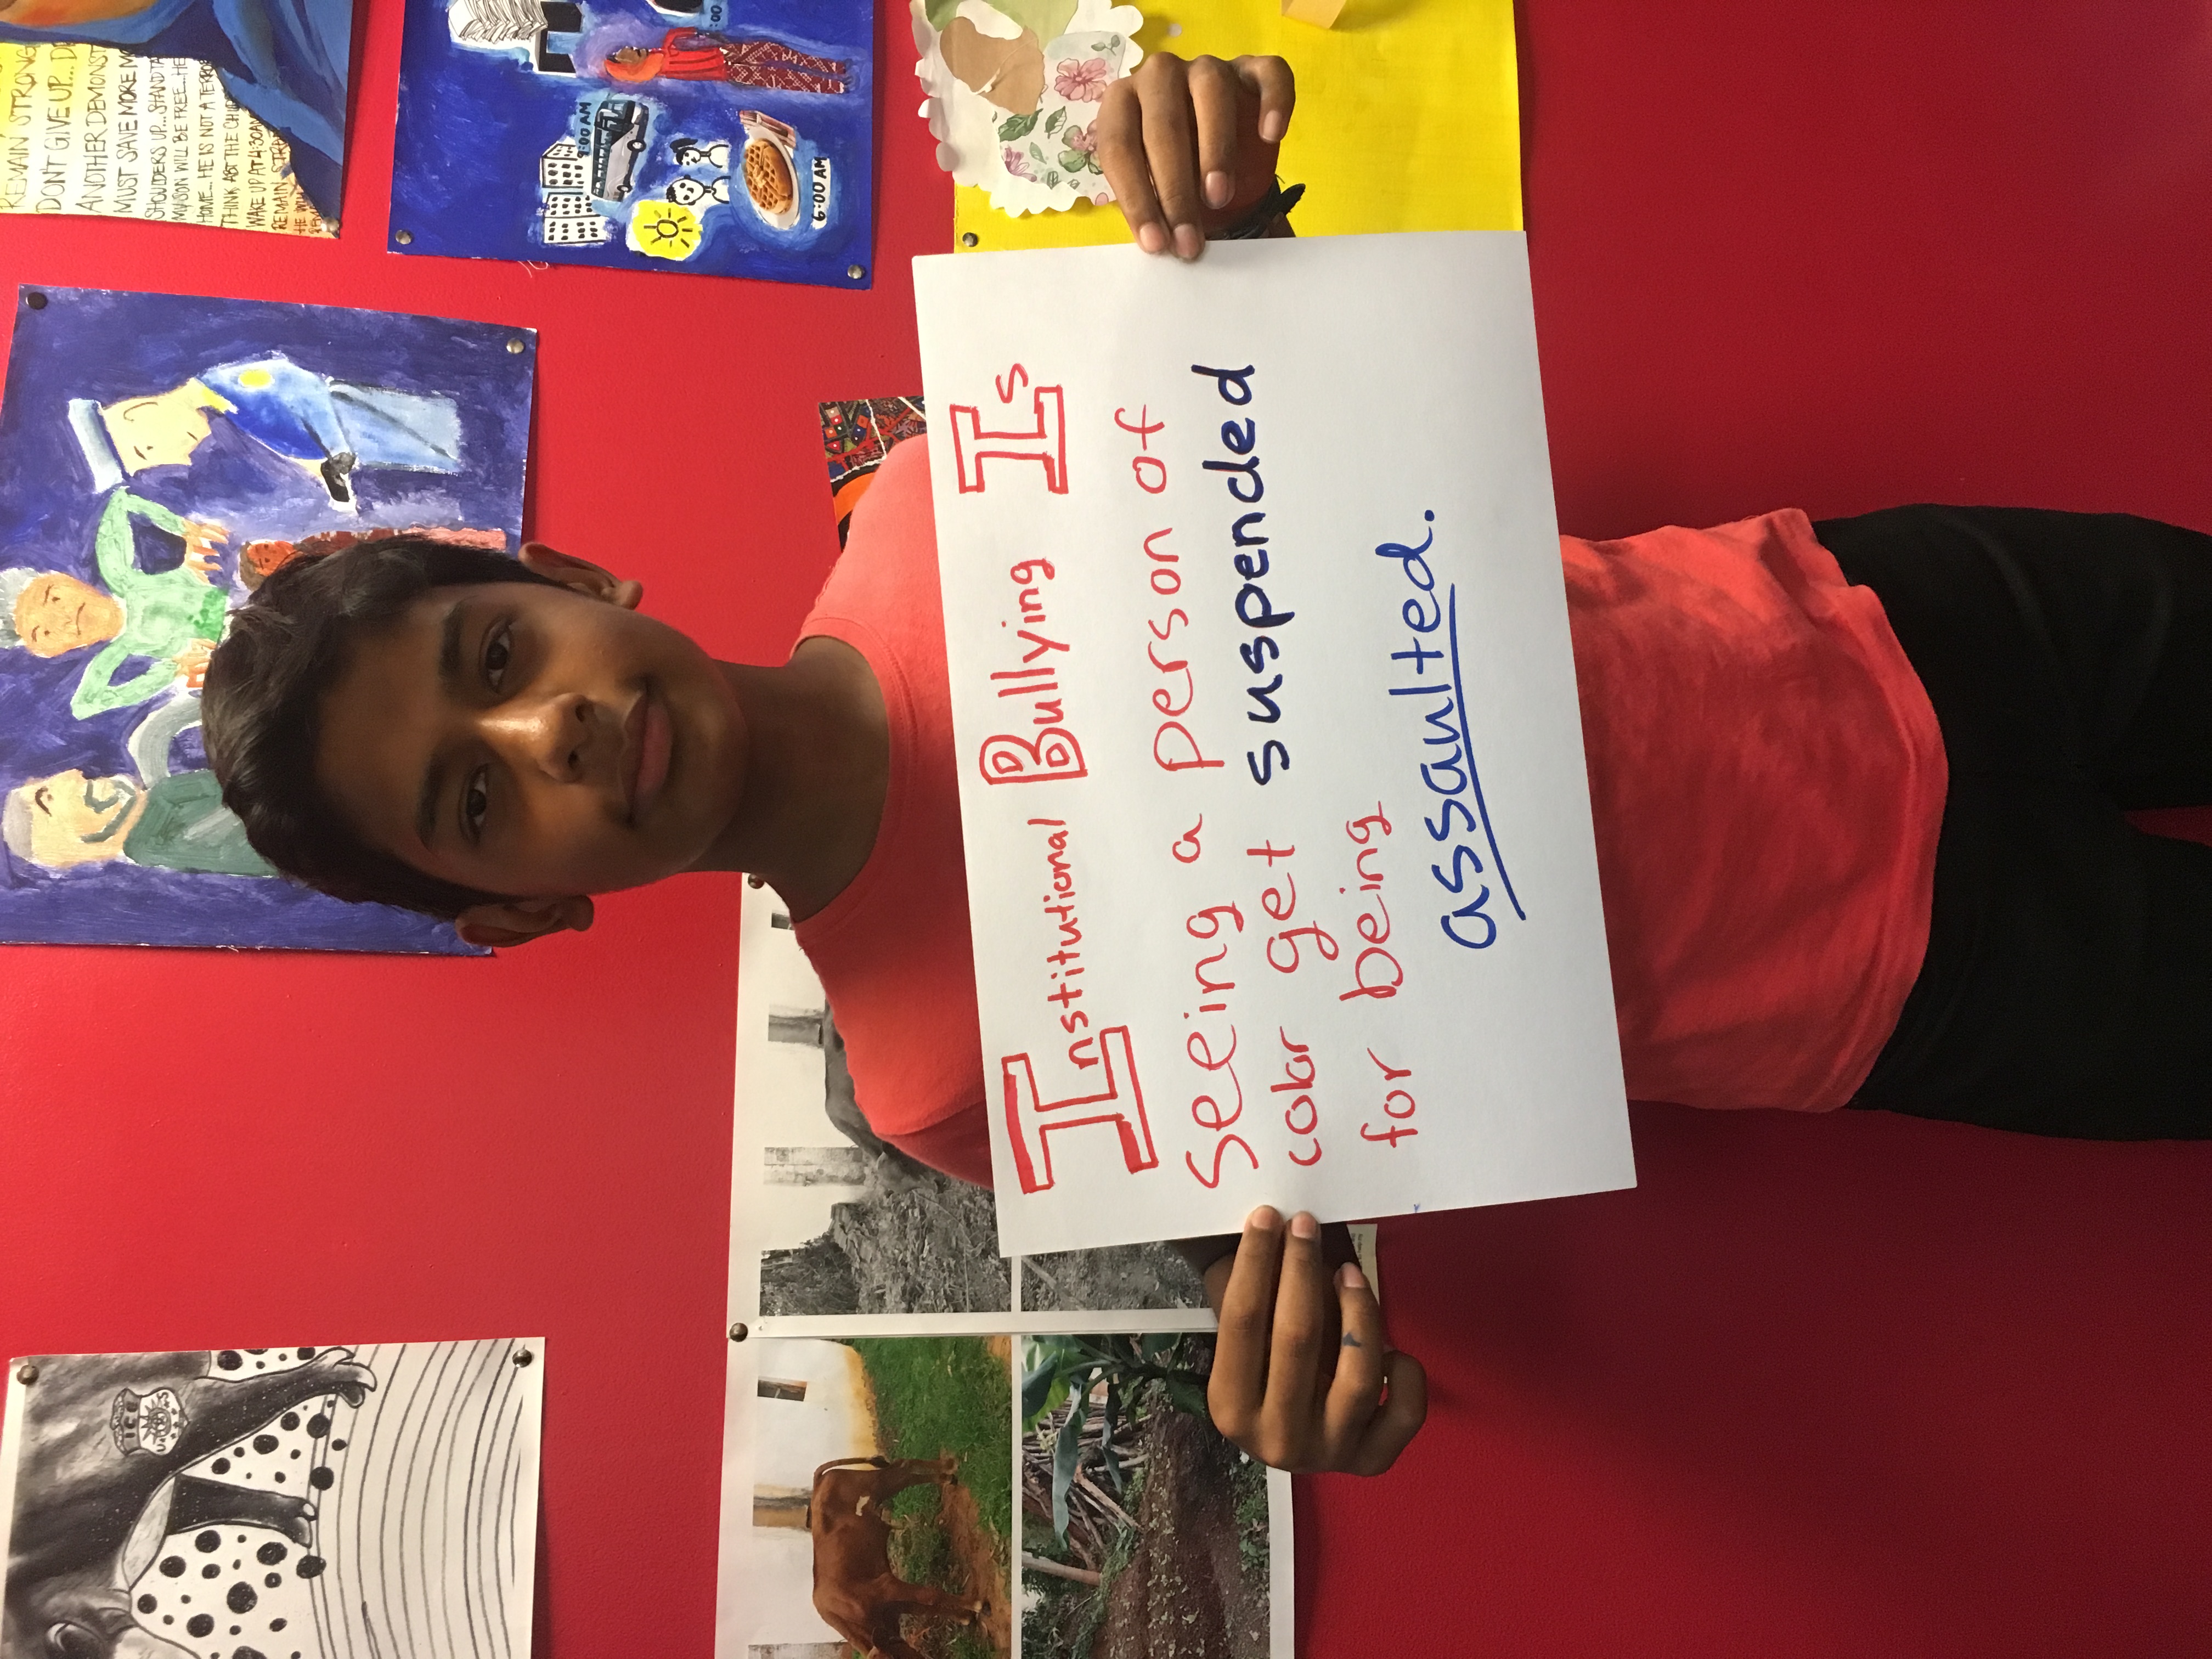 ICE
U S
REMAIN STRONG
DON'T GIVE UP...
ANOTHER DEMONST
MUST SAVE MORE
SHOULDERS UP...STAND TA
MY SON WILL BE FREE...HE
HOME... HE IS NOT A TERRO
THINK ABT THE
WAKE UP AT 4:30AM
REMAIN
9:00 AM
:00
6:00 AM
Institutional Bullying Is
seeing a person of
color get suspended
for being
assaulted.